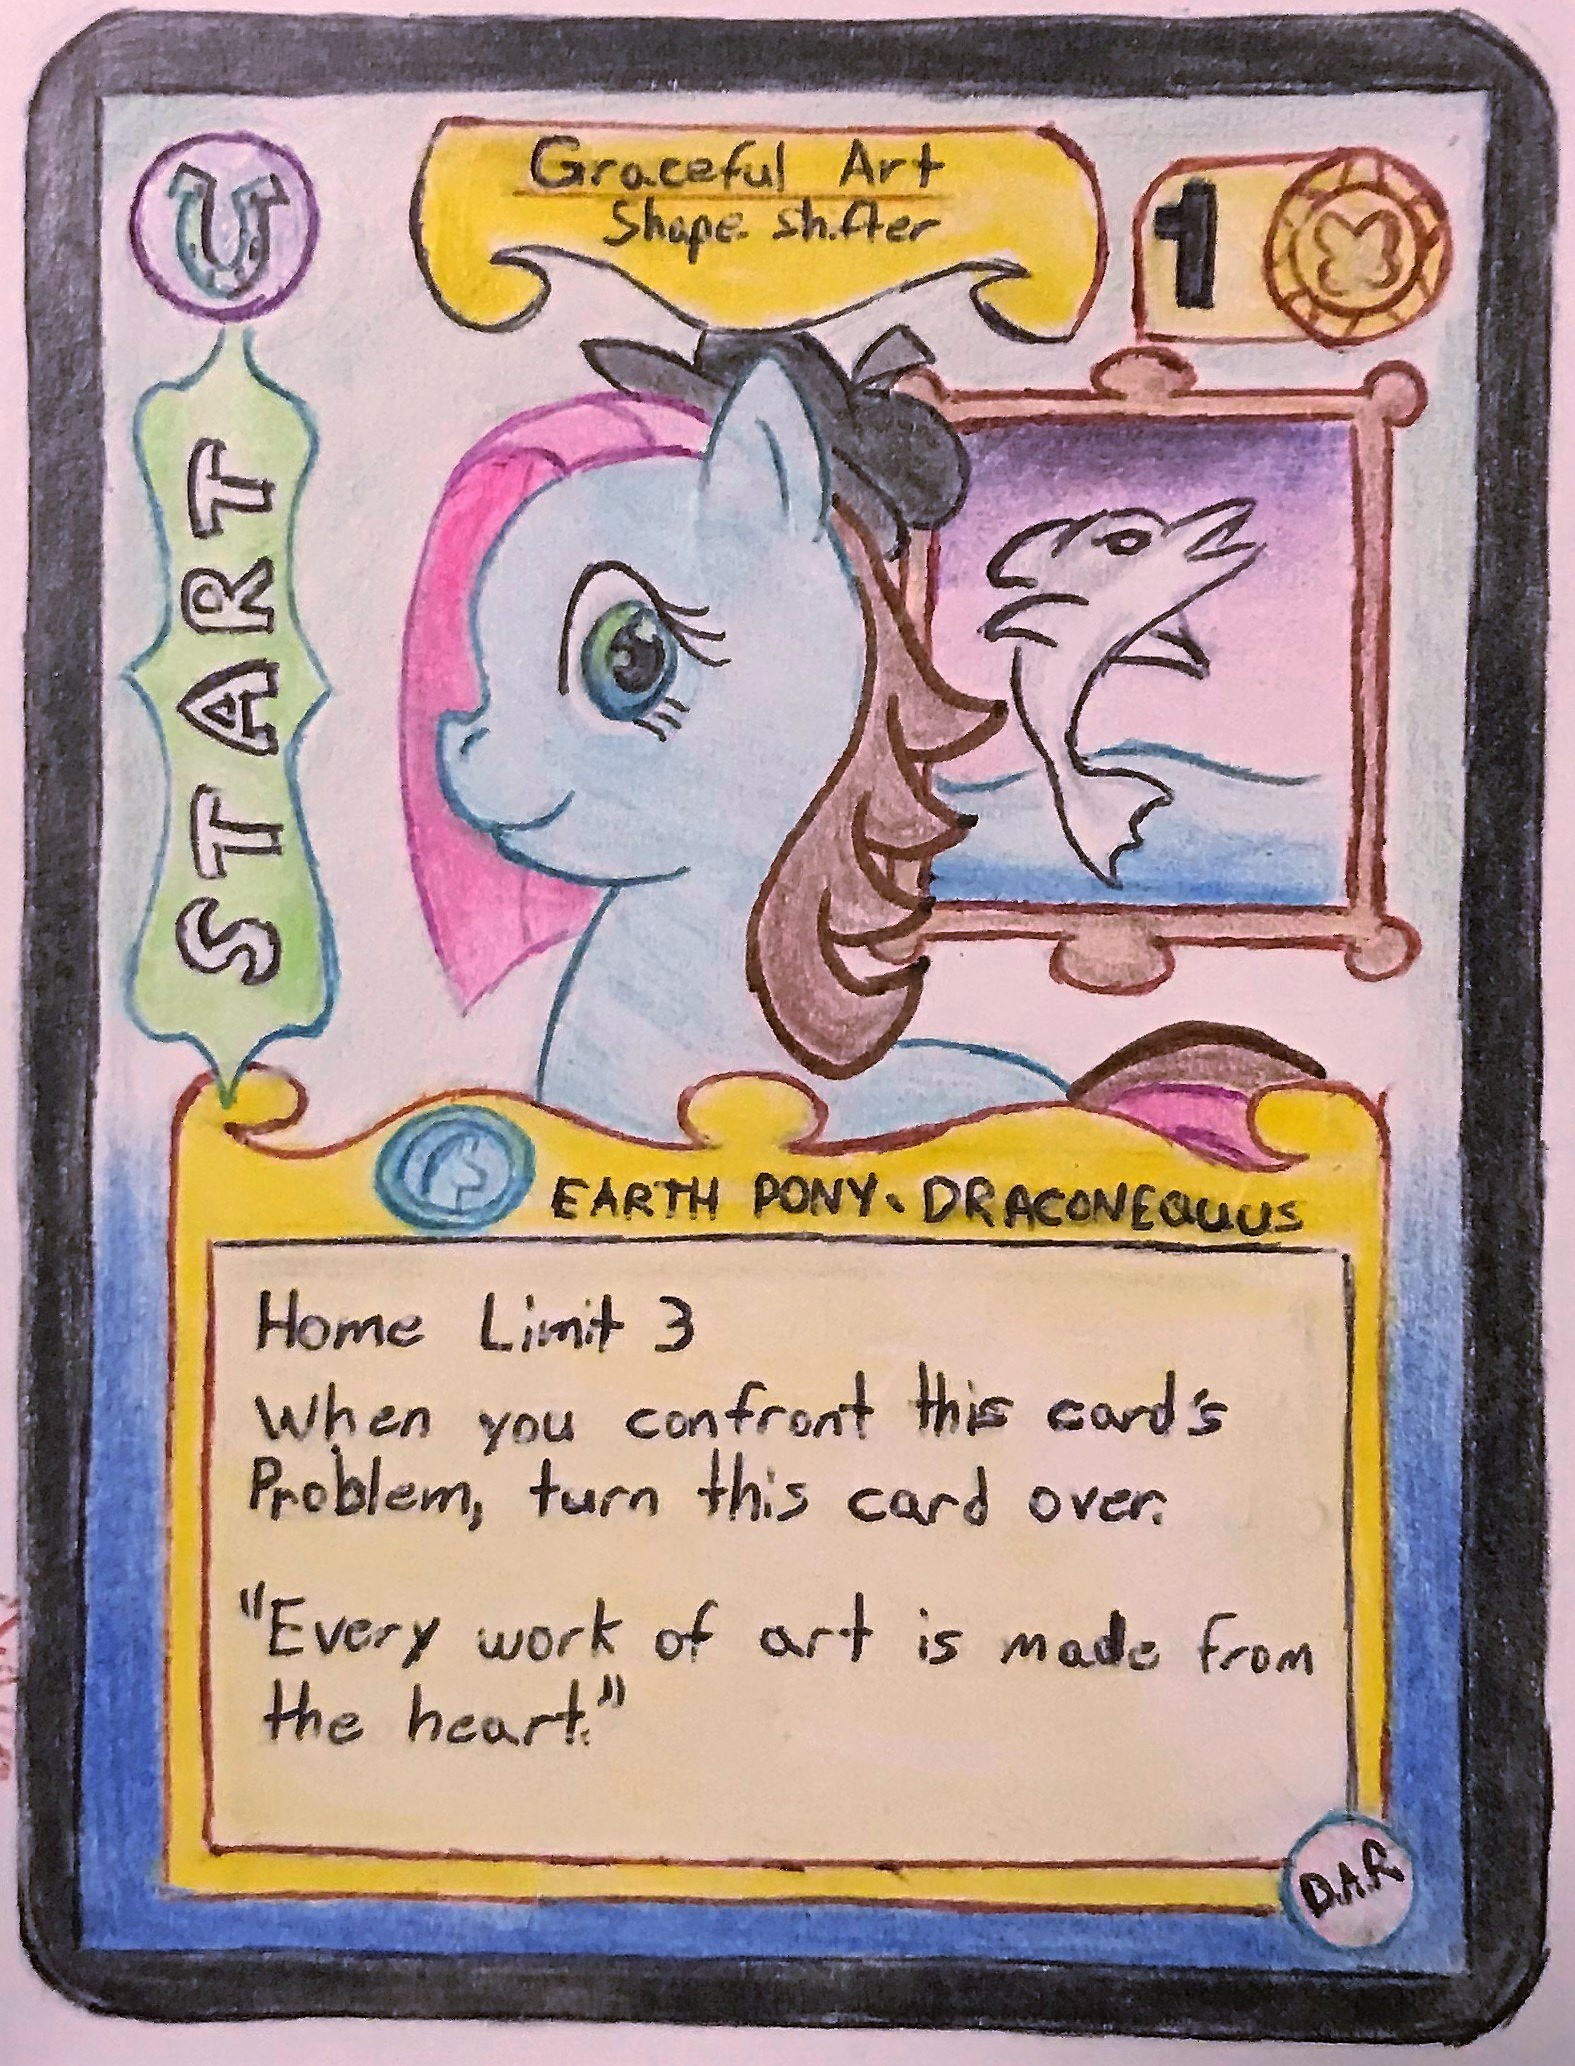 Graceful Art
Shape-shifter
1
START
EARTH PONY. DRACONEQUUS
Home Limit 3
When you confront this card's
Problem, turn this card over.
"Every work of art is made from
the heart."
D.A.R